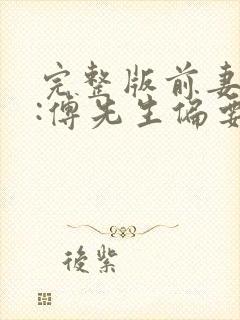 完整版前妻
:傅先生偏要
後紫